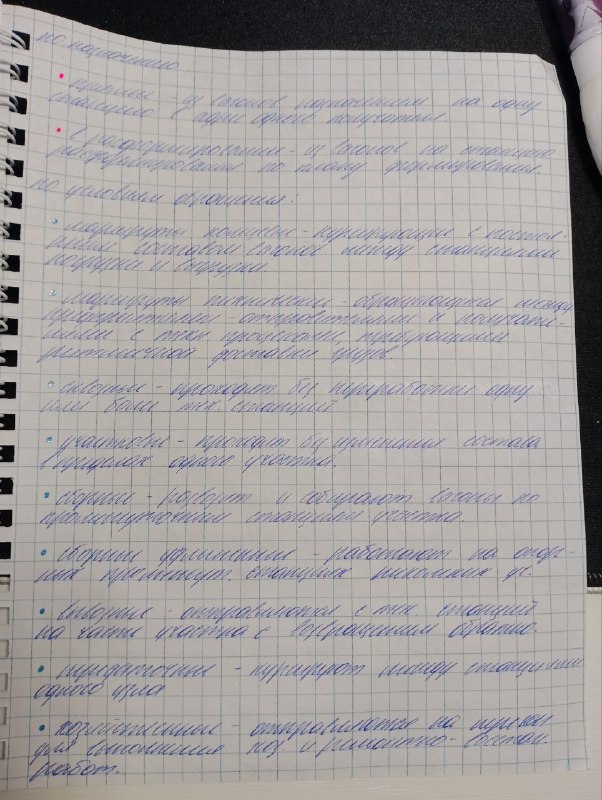 по назначению
• прямые - из вагонов назначением на одну
станцию в адрес одного получателя
• с расформированием - из вагонов на станцию
расформирования по плану формирования.
по условиям обращения:
• маршруты кольцевые - курсирующие с постоян-
ным составом вагонов между станциями
погрузки и выгрузки.
• маршруты технические - обращающиеся между
предприятиями - отправителями и получате-
лями с техн процессами, требующими
ритмичной доставки грузов
• сквозные - проходят без переработки одну
или более тех. станций
• участковые - проходят без изменения состава
в пределах одного участка.
• сборные - развозят и собирают вагоны по
промежуточным станциям участка.
• сборные удлиненные - работают на опор-
ных промежут. станциях нескольких уч.
• вывозные - отправляются с тех станций
на часть участка с возвращением обратно.
• передаточные - курсируют между станциями
одного узла
• хозяйственные - отправляются на перегон
для выполнения хоз и ремонтно-восстан.
работ.